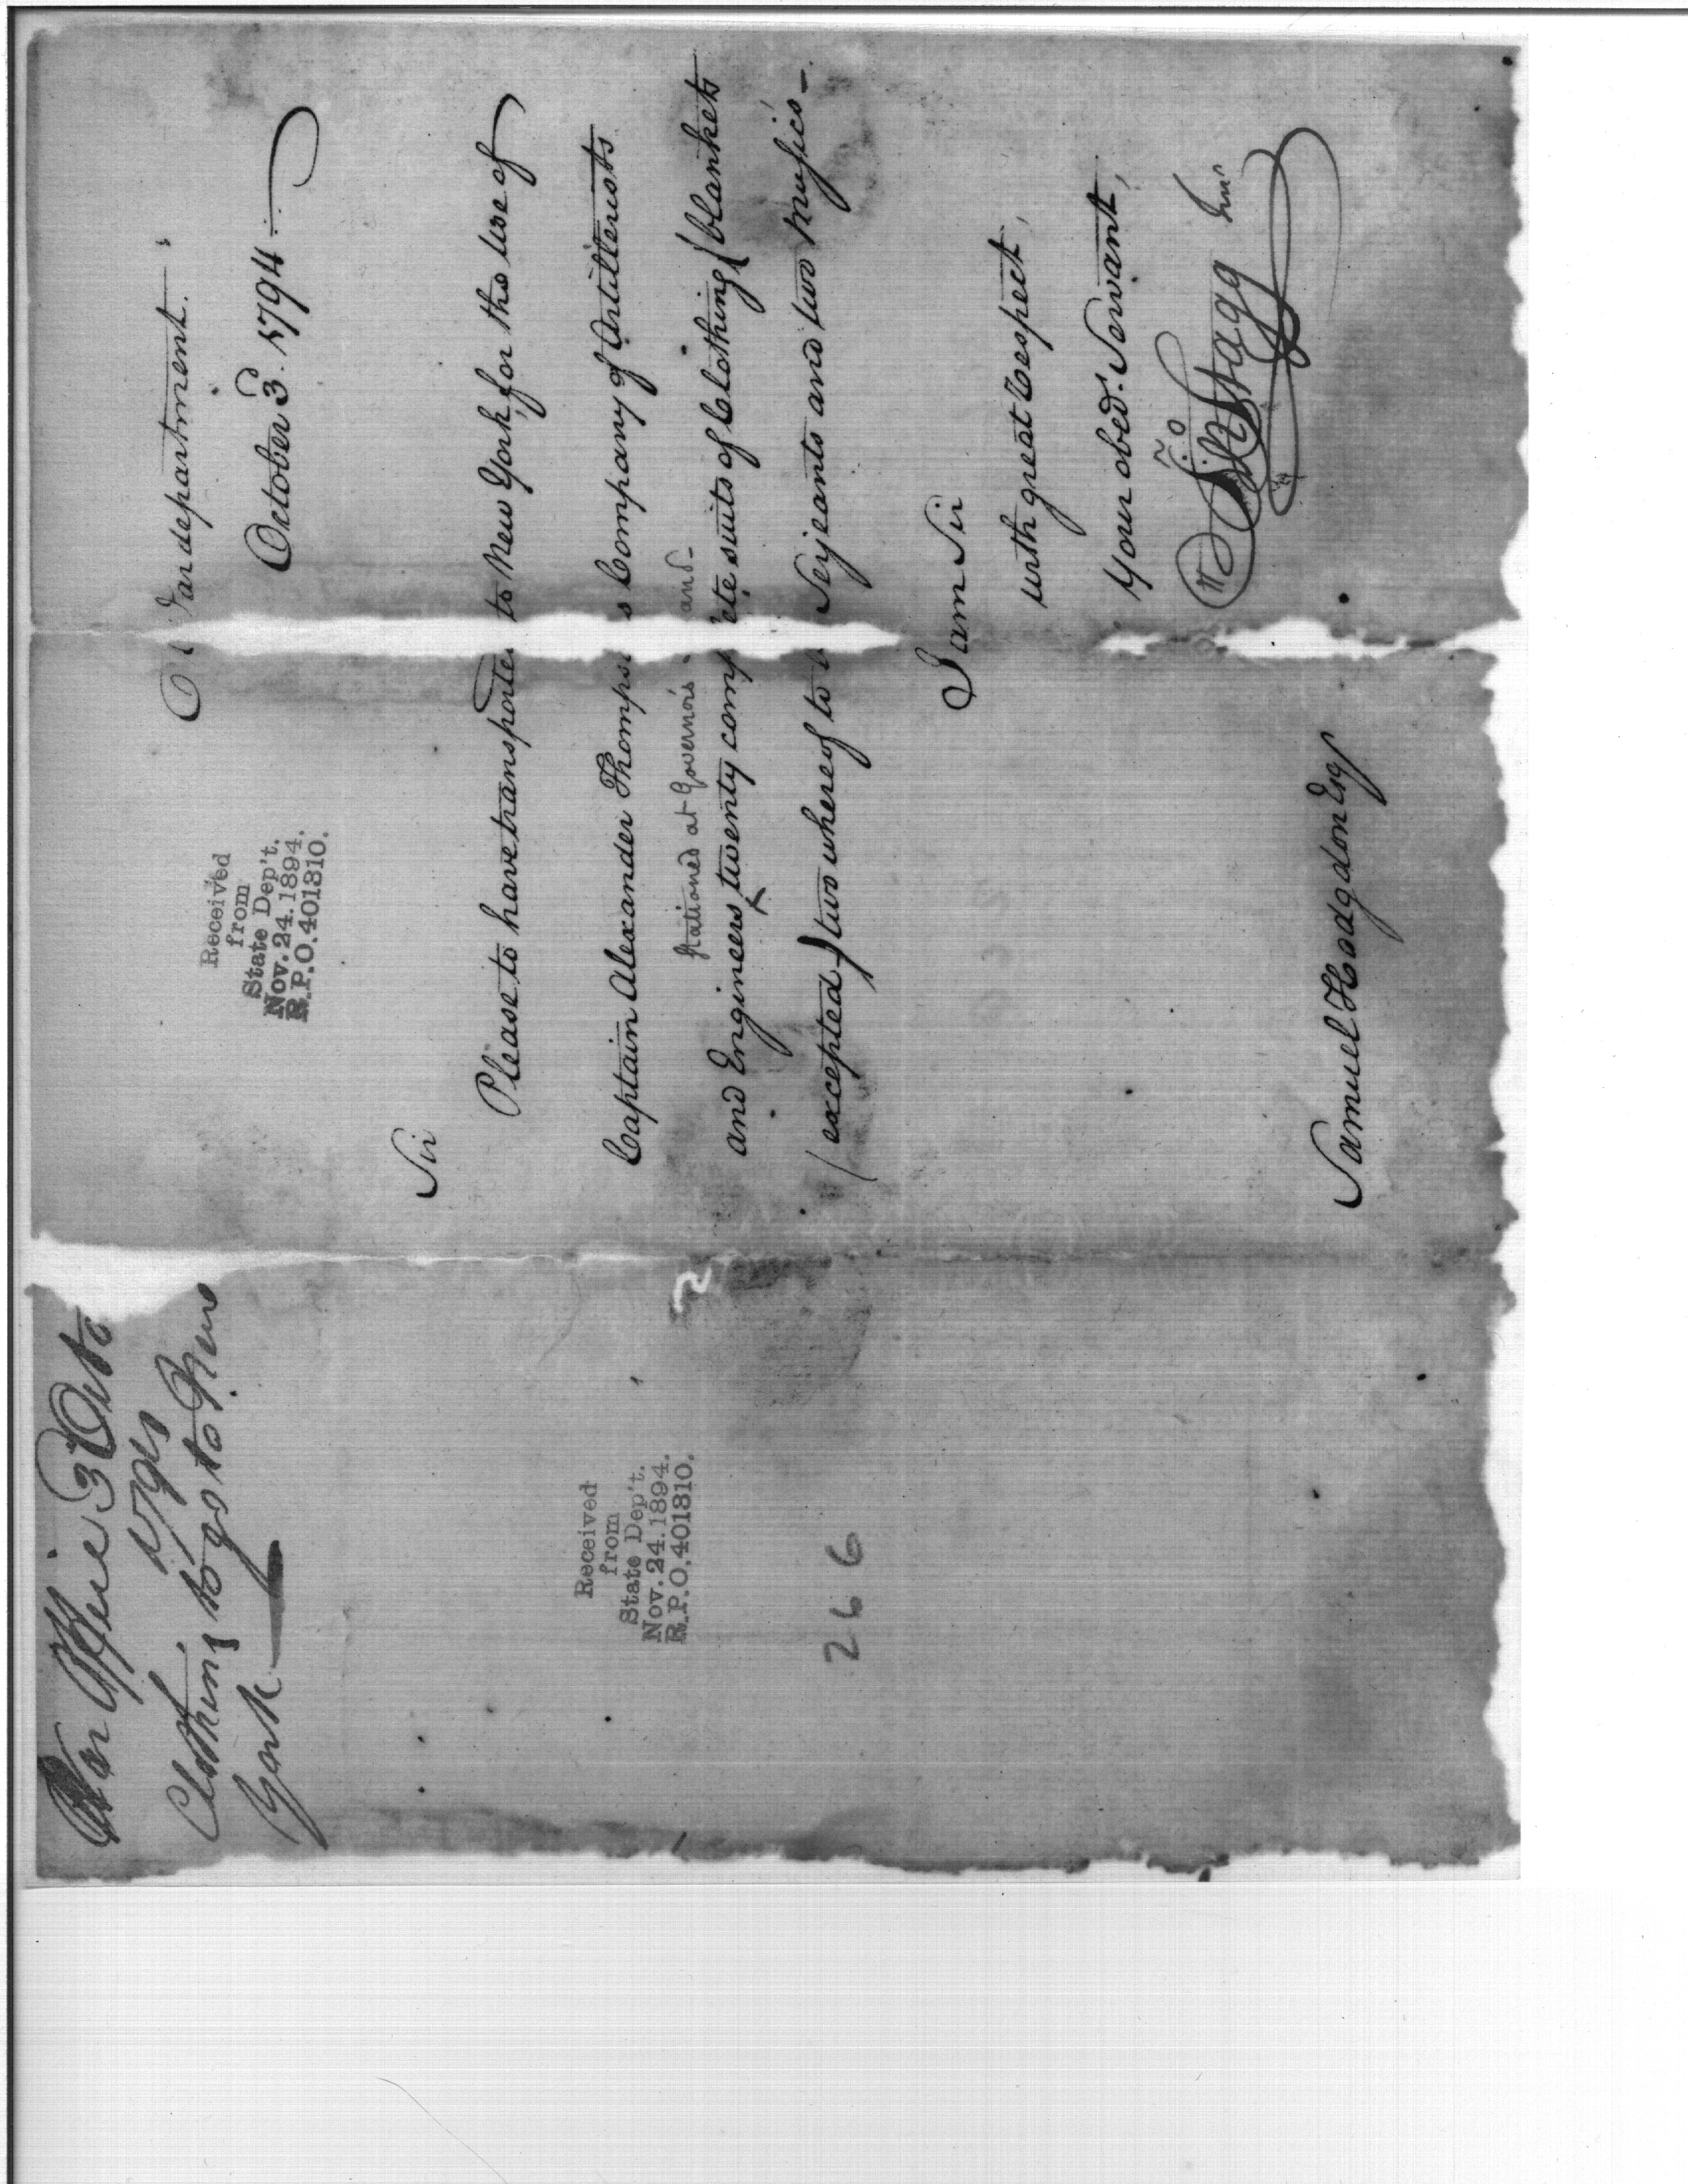 War department.
October 3d. 1794
Received
from
State Dep't.
Nov. 24. 1894.
R.P.O. 401310.
Sir
Please to have transported to New York, for the use of
Captain Alexander Thompson's Company of Artillerists
stationed at Governor's and
and Engineers, ^ twenty complete suits of Clothing (blankets
(excepted) two whereof to Serjeants and two Musics—
I am Sir
with great respect,
your obed. Servant,
Jno Stagg Junr
Samuel Hodgdon Esqr
War Office 3 Octo
1794
Clothing to go to New
York
Received
from
State Dep't.
Nov. 24. 1894.
R.P.O. 401310.
2
266